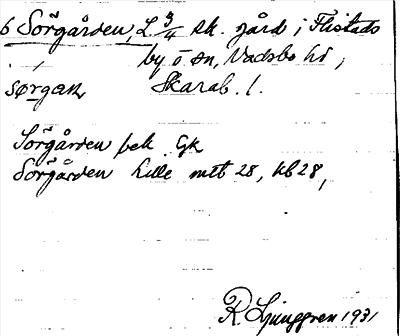 6 Sörgården, L. 3/4 sk. gård i Flistads
by o sn, Vadsbo hd,
sørgan Skarab. l.
Sörgården pek Gk
Sörgården Lille mtb 28, kb 28,
R. Ljunggren 1931